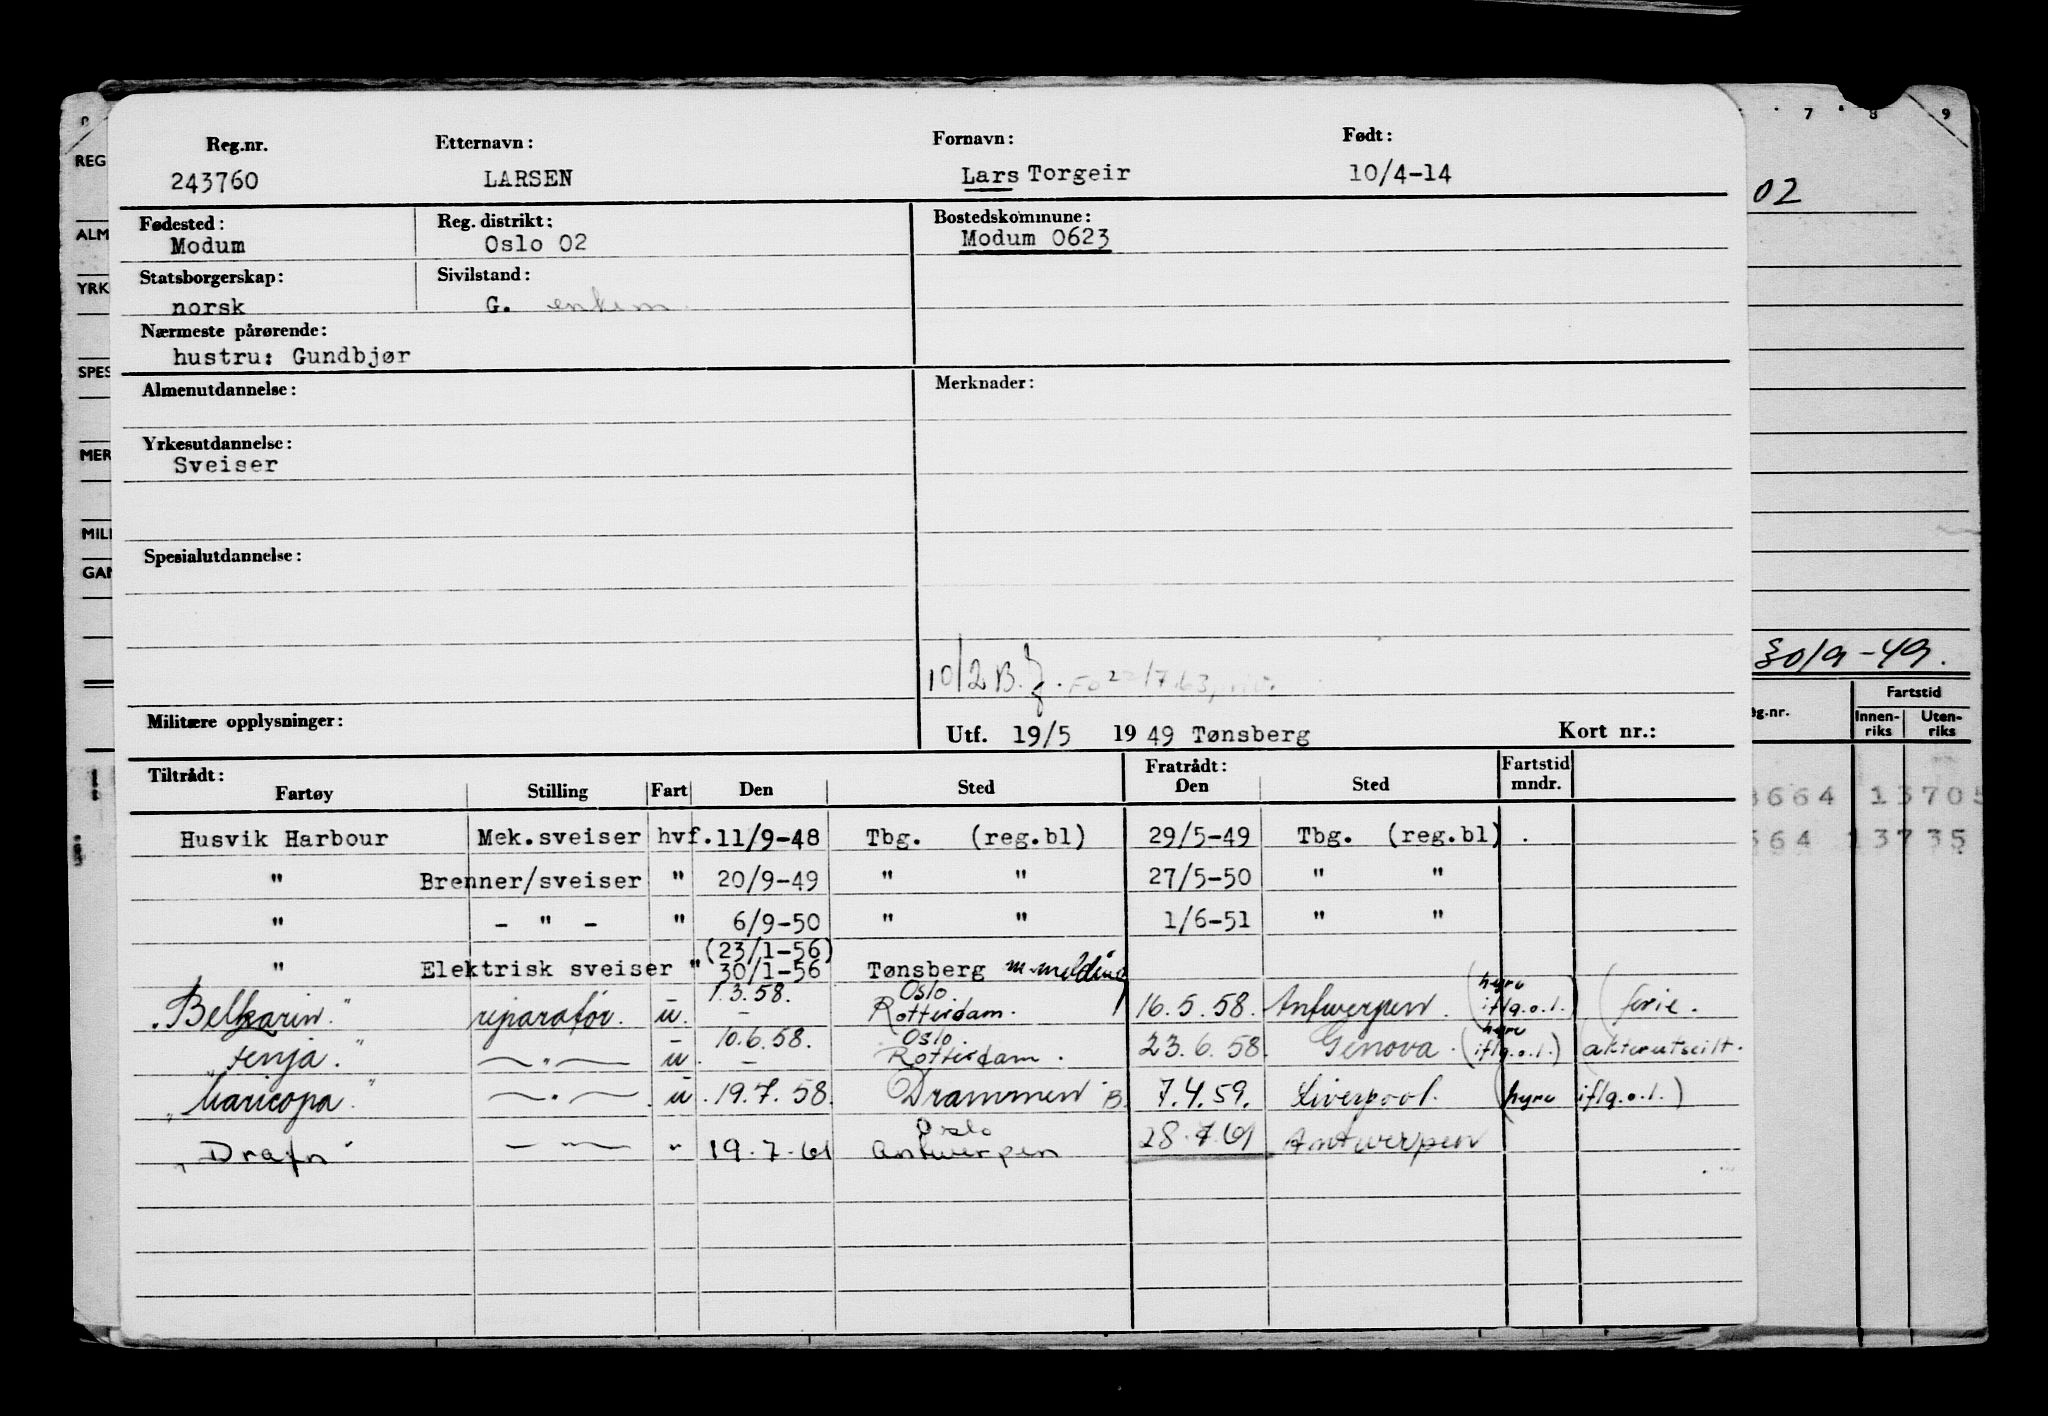 Reg.nr. Etternavn: Fornavn: Født:
243760 LARSEN Lars Torgeir 10/4-14
Fødested: Reg. distrikt: Bostedskommune:
Modum Oslo 02 Modum 0623
Statsborgerskap: Sivilstand:
norsk G. enkem.
Nærmeste pårørende:
hustru: Gundbjør
Almenutdannelse: Merknader:
Yrkesutdannelse:
Sveiser
Spesialutdannelse:
10/2 B. Fo 22/7.63,
Militære opplysninger: Utf. 19/5 1949 Tønsberg Kort nr.:
Tiltrådt: Fratrådt: Fartstid
Fartøy Stilling Fart Den Sted Den Sted mndr.
Husvik Harbour Mek.sveiser hvf. 11/9-48 Tbg. (reg.bl) 29/5-49 Tbg. (reg.bl) .
" Brenner/sveiser " 20/9-49 " " 27/5-50 " "
" - " - " 6/9-50 " " 1/6-51 " "
(23/1-56)
" Elektrisk sveiser " 30/1-56 Tønsberg m-melding
1.3.58. Oslo. hyre
"Belkarin." reparatør. u. - Rotterdam. 16.5.58. Antwerpen. (iflg.o.l.) (ferie.
10.6.58. Oslo hyre
"Fenja." — " — u. - Rotterdam. 23.6.58. Genova. (iflg.o.l.) (akterutseilt.
"Maricopa." — " — u. 19.7.58. Drammen B. 7.4.59. Liverpool. (hyre iflg.o.l.)
Oslo
"Drafn" — " — " 19.7.61 Antwerpen 28.7.61 Antwerpen
REG
ALM
YRK
SPES
MER
MILI
GAN
7 8 9
02
30/9-49.
Fartstid
g.nr. Innen-riks Uten-riks
3664 13705
564 13735